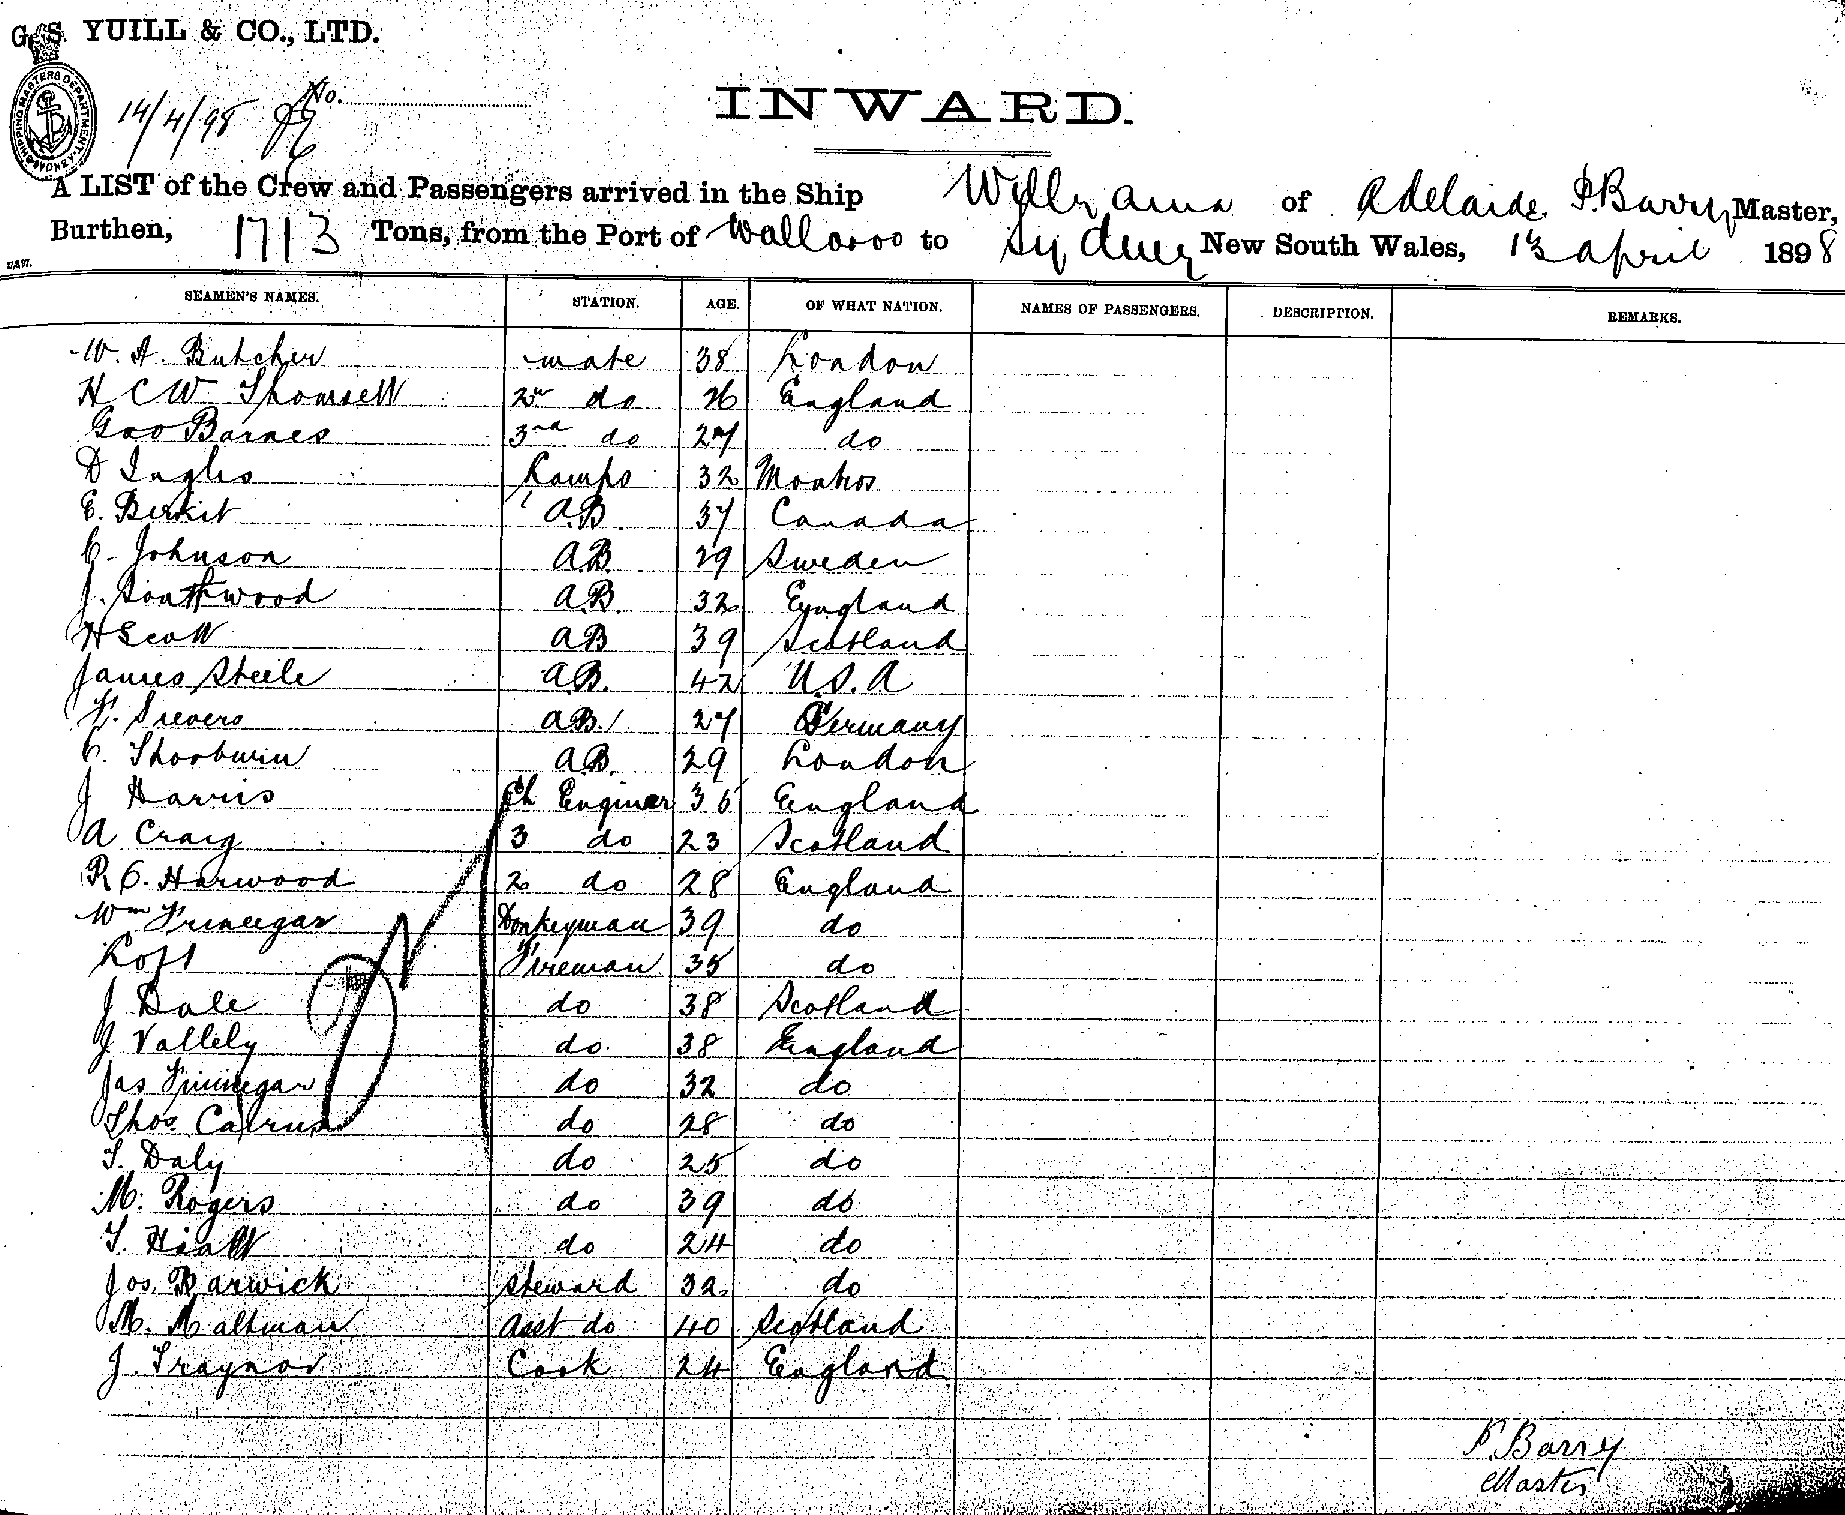 G. S. YUILL & CO., LTD.
SHIPPING MASTERS DEPARTMENT SYDNEY
14/4/98 No.
INWARD.
A LIST of the Crew and Passengers arrived in the Ship Willyama of Adelaide P. Barry Master,
Burthen, 1713 Tons, from the Port of Wallaroo to Sydney New South Wales, 13 April 1898
SEAMEN'S NAMES. STATION. AGE. OF WHAT NATION. NAMES OF PASSENGERS. DESCRIPTION. REMARKS.
W. A. Butcher mate 38 London
H C W Thomsett 2nd do 26 England
Geo Barnes 3rd do 27 do
D Inglis Lamps 32
E. Birkit A.B. 37 Canada
C. Johnson A.B. 29 Sweden
J. Southwood A.B. 32 England
H Scott A B 39 Scotland
James Steele A.B. 42 U.S.A
F. Sievers A.B. 27 Germany
C. Thorburn A.B. 29 London
J Harris Ch Engineer 36 England
A Craig 3 do 23 Scotland
R C. Harwood 2 do 28 England
Wm Finnegan Donkeyman 39 do
Loft Fireman 35 do
J Dale do 38 Scotland
J Vallely do 38 England
Jas Finnegan do 32 do
Thos. Cairns do 28 do
T. Daly do 25 do
M. Rogers do 39 do
T. Hiatt do 24 do
Jos. Barwick Steward 32 do
M. Maltman Asst do 40 Scotland
J. Traynor Cook 24 England
P. Barry
Master